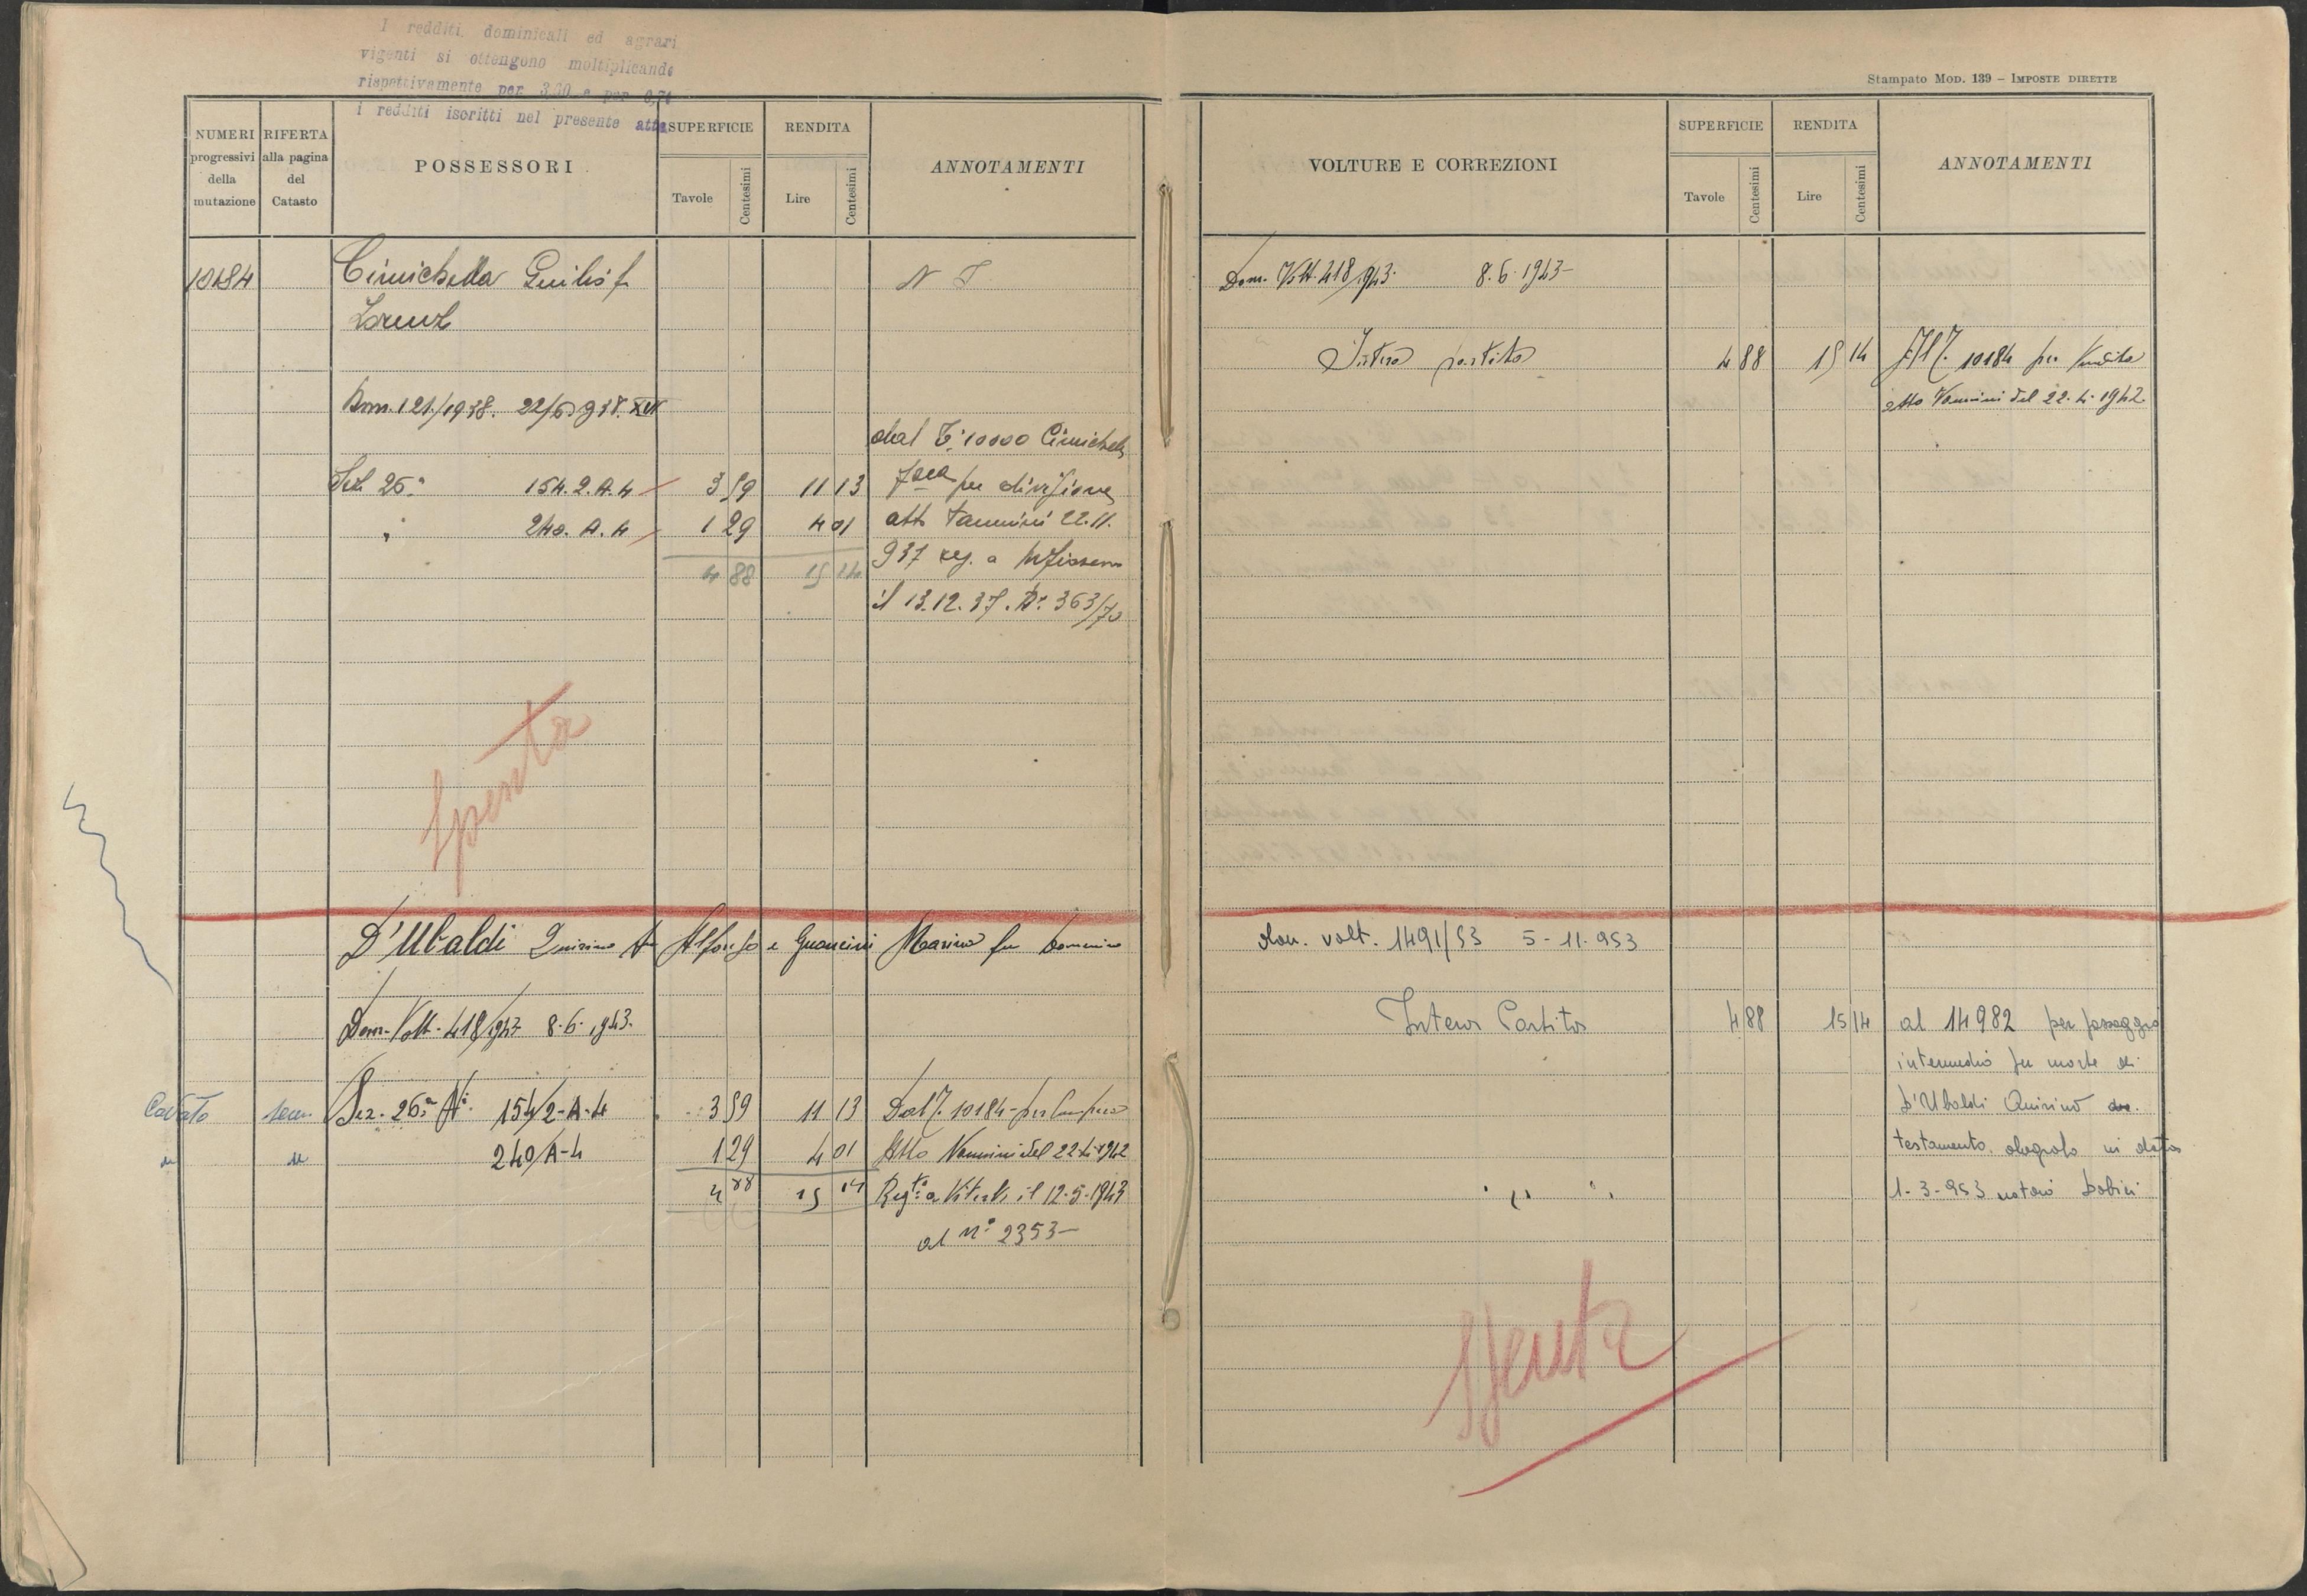 I redditi dominicali ed agrari
vigenti si ottengono moltiplicando
rispettivamente per 3,30 e per
i redditi iscritti nel presente atto
Stampato Mod. 139 – Imposte dirette
NUMERI progressivi della mutazione
RIFERTA alla pagina del Catasto
POSSESSORI
SUPERFICIE
Tavole Centesimi
RENDITA
Lire Centesimi
ANNOTAMENTI
VOLTURE E CORREZIONI
SUPERFICIE
Tavole Centesimi
RENDITA
Lire Centesimi
ANNOTAMENTI
10184 Cimichella Giulio f
Lorenzo
Dom. 121/1938. 22/6 938. XVI
dal T. 10000 Cimichella
Sez 26ª 154.2.A.4 3 59 11 13 per divisione
" 240.A.4 1 29 4 01 atto Vannini 22.11.
4 88 15 14 937 reg. a
il 13.12.37. N° 363/70
Spenta
Dom. Volt. 418/943. 8.6.1943
Intera partita 4 88 15 14 Al T. 10184 per Vendita
atto Vannini del 22.4.1942.
D'Ubaldi Quirino fu Alfonso e Guancini Marino fu Domenico
Dom. Volt. 418/1943 8.6.1943.
Cavato Sez. 26ª N° 154/2-A-4 3 59 11 13 Dal T. 10184 per compera
240/A-4 1 29 4 01 Atto Vannini del 22-4-1942
4 88 15 14 Reg.to a Viterbo il 12-5-1943
al N° 2353
volt. 1491/53 5-11-953
Intera Partita 4 88 15 14 al 14982 per passaggio
intermedio per morte di
D'Ubaldi Quirino
testamento olografo in data
1-3-953 notaio
Spenta